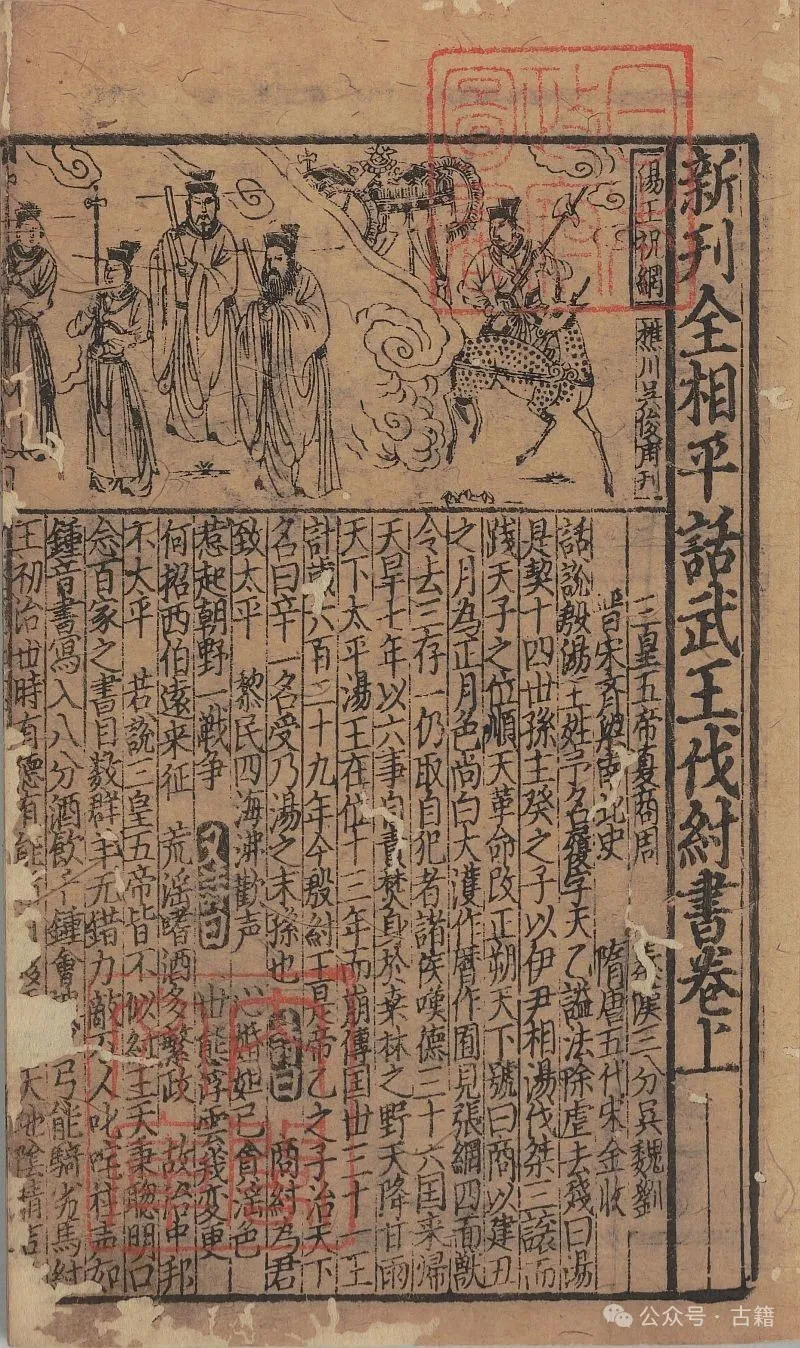 新刊全相平話武王伐紂書卷上
湯王祝網
樵川吳俊甫刊
三皇五帝夏商周 漢三分吳魏劉
晉宋齊梁南北史 隋唐五代宋金收
話說殷湯王姓子名履字天乙謚法除虐去殘曰湯
是契十四世孫主癸之子以伊尹相湯伐桀三讓而
踐天子之位順天革命改正朔天下號曰商以建丑
之月為正月色尚白大濩作曆作囿見張網四面獸
令去三存一仍取自犯者諸侯嘆德三十六国来歸
天旱七年以六事自責焚身於桒林之野天降甘雨
天下太平湯王在位十三年而崩傳国世三十一王
計歲六百二十九年今殷紂王是帝乙之子治天下
名曰辛一名受乃湯之末孫也 商紂為君
致太平 黎民四海沸歡声 心婚妲己貪淫色
惹起朝野一戰争 世態浮雲幾變更
何招西伯遠来征 荒淫嗜酒多繁政 故治中邦
不太平 若說三皇五帝皆不似紂王天秉聰明口
念百家之書目数群羊无錯力敵万人叱咤柱声如
鍾音書寫入八分酒飲千鍾會 弓能騎劣馬紂
王初治世時有德有能 天地陰
公众号·古籍